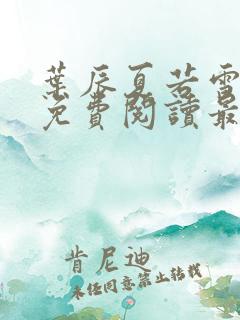 葉辰夏若雪
免費閱讀最
肯尼迪
未經同意禁止轉載